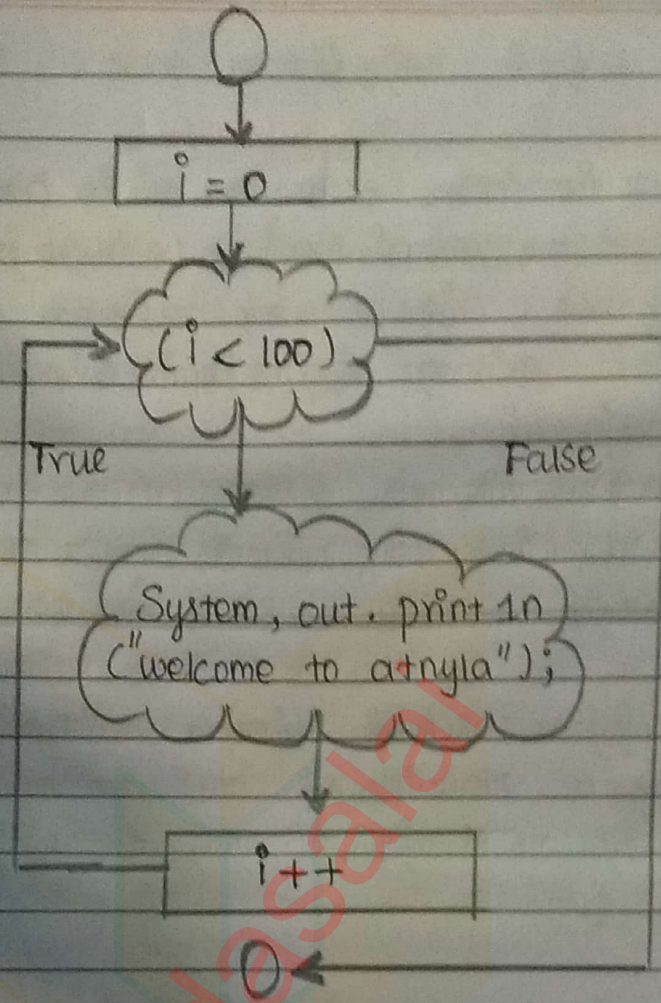 i = 0
(i < 100)
True
False
System, out. print 1n
("welcome to atnyla");
i++